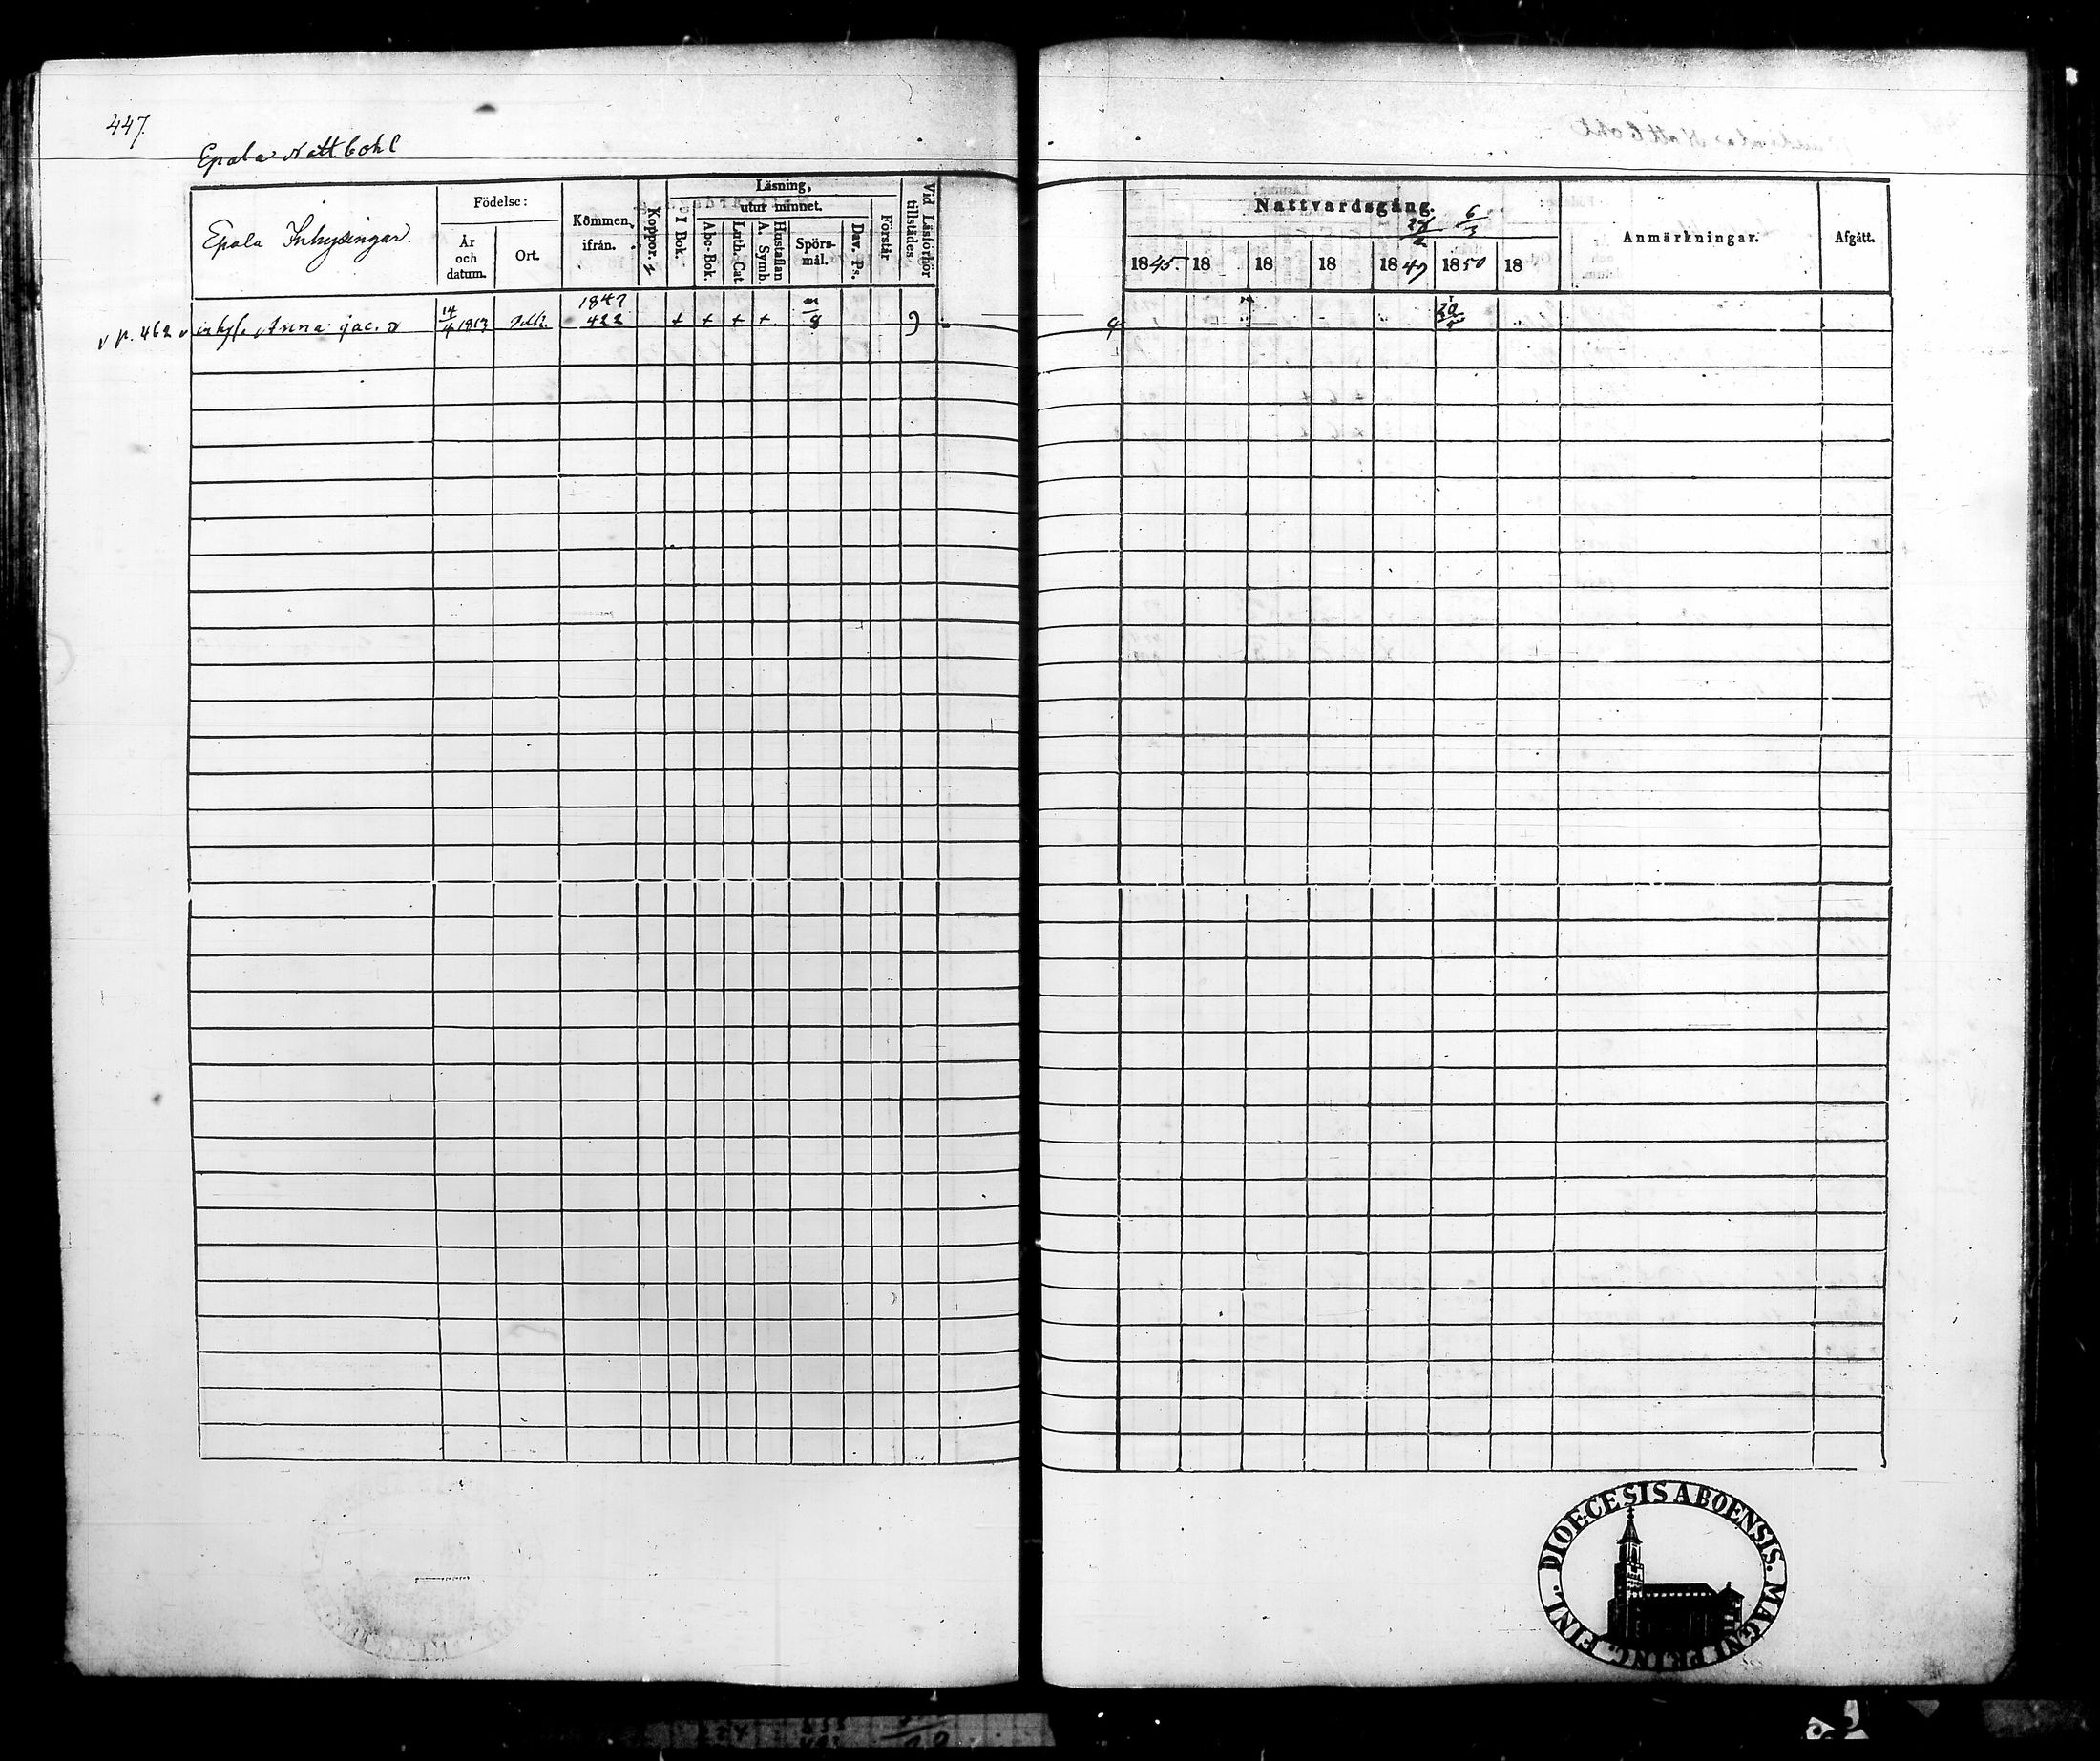 447.
Epala Nattbohl
Epala Inhysingar.
Födelse:
År och datum.
Ort.
Kommen ifrån.
Koppor.
Läsning,
utur minnet.
I Bok.
Abc-Bok.
Luth. Cat.
Hustaflan A. Symb.
Spörsmål.
Dav. Ps.
Förstår
Vid Läsförhör tillstädes.
Nattvardsgång.
24/2 6/3
1845. 18 18 18 1849 1850 18
Anmärkningar.
Afgått.
v p. 462 v inhys. Anna Jac. D 14/4 1813 1847 422 + + + +
DIOECESIS ABOENSIS. MAGNI PRINC. FINL.